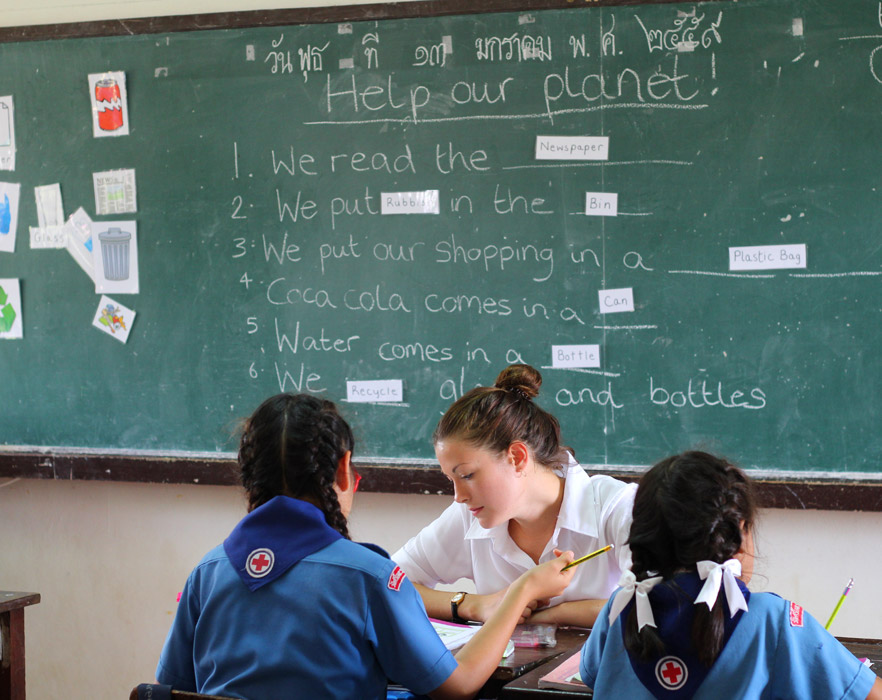 วัน พุธ ที่ ๑๓ มกราคม พ.ศ. ๒๕๕๙
Help our planet!
1. We read the Newspaper
2. We put Rubbish in the Bin
3. We put our shopping in a Plastic Bag
4. Coca cola comes in a Can
5. Water comes in a Bottle
6. We Recycle and bottles
Glass